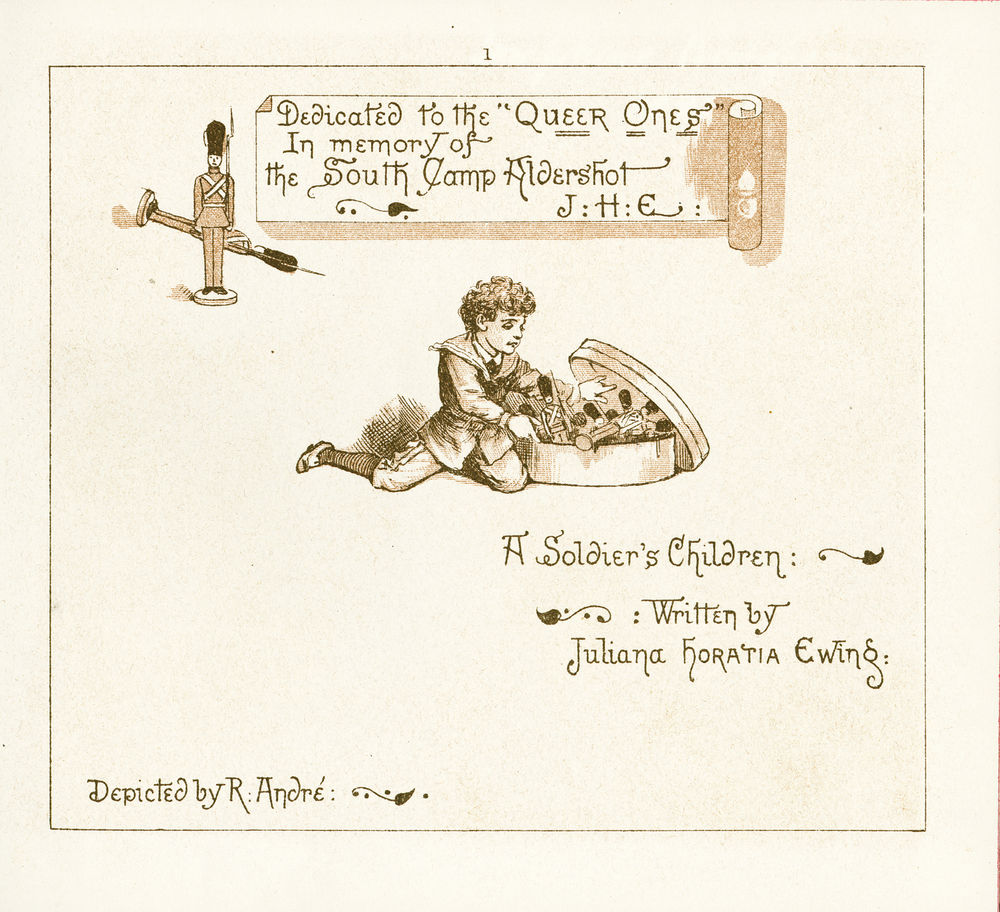 1
Dedicated to the "Queer Ones"
In memory of
the South Camp Aldershot
J:H:E:
A Soldier's Children:
: Written by
Juliana Horatia Ewing:
Depicted by R. André: